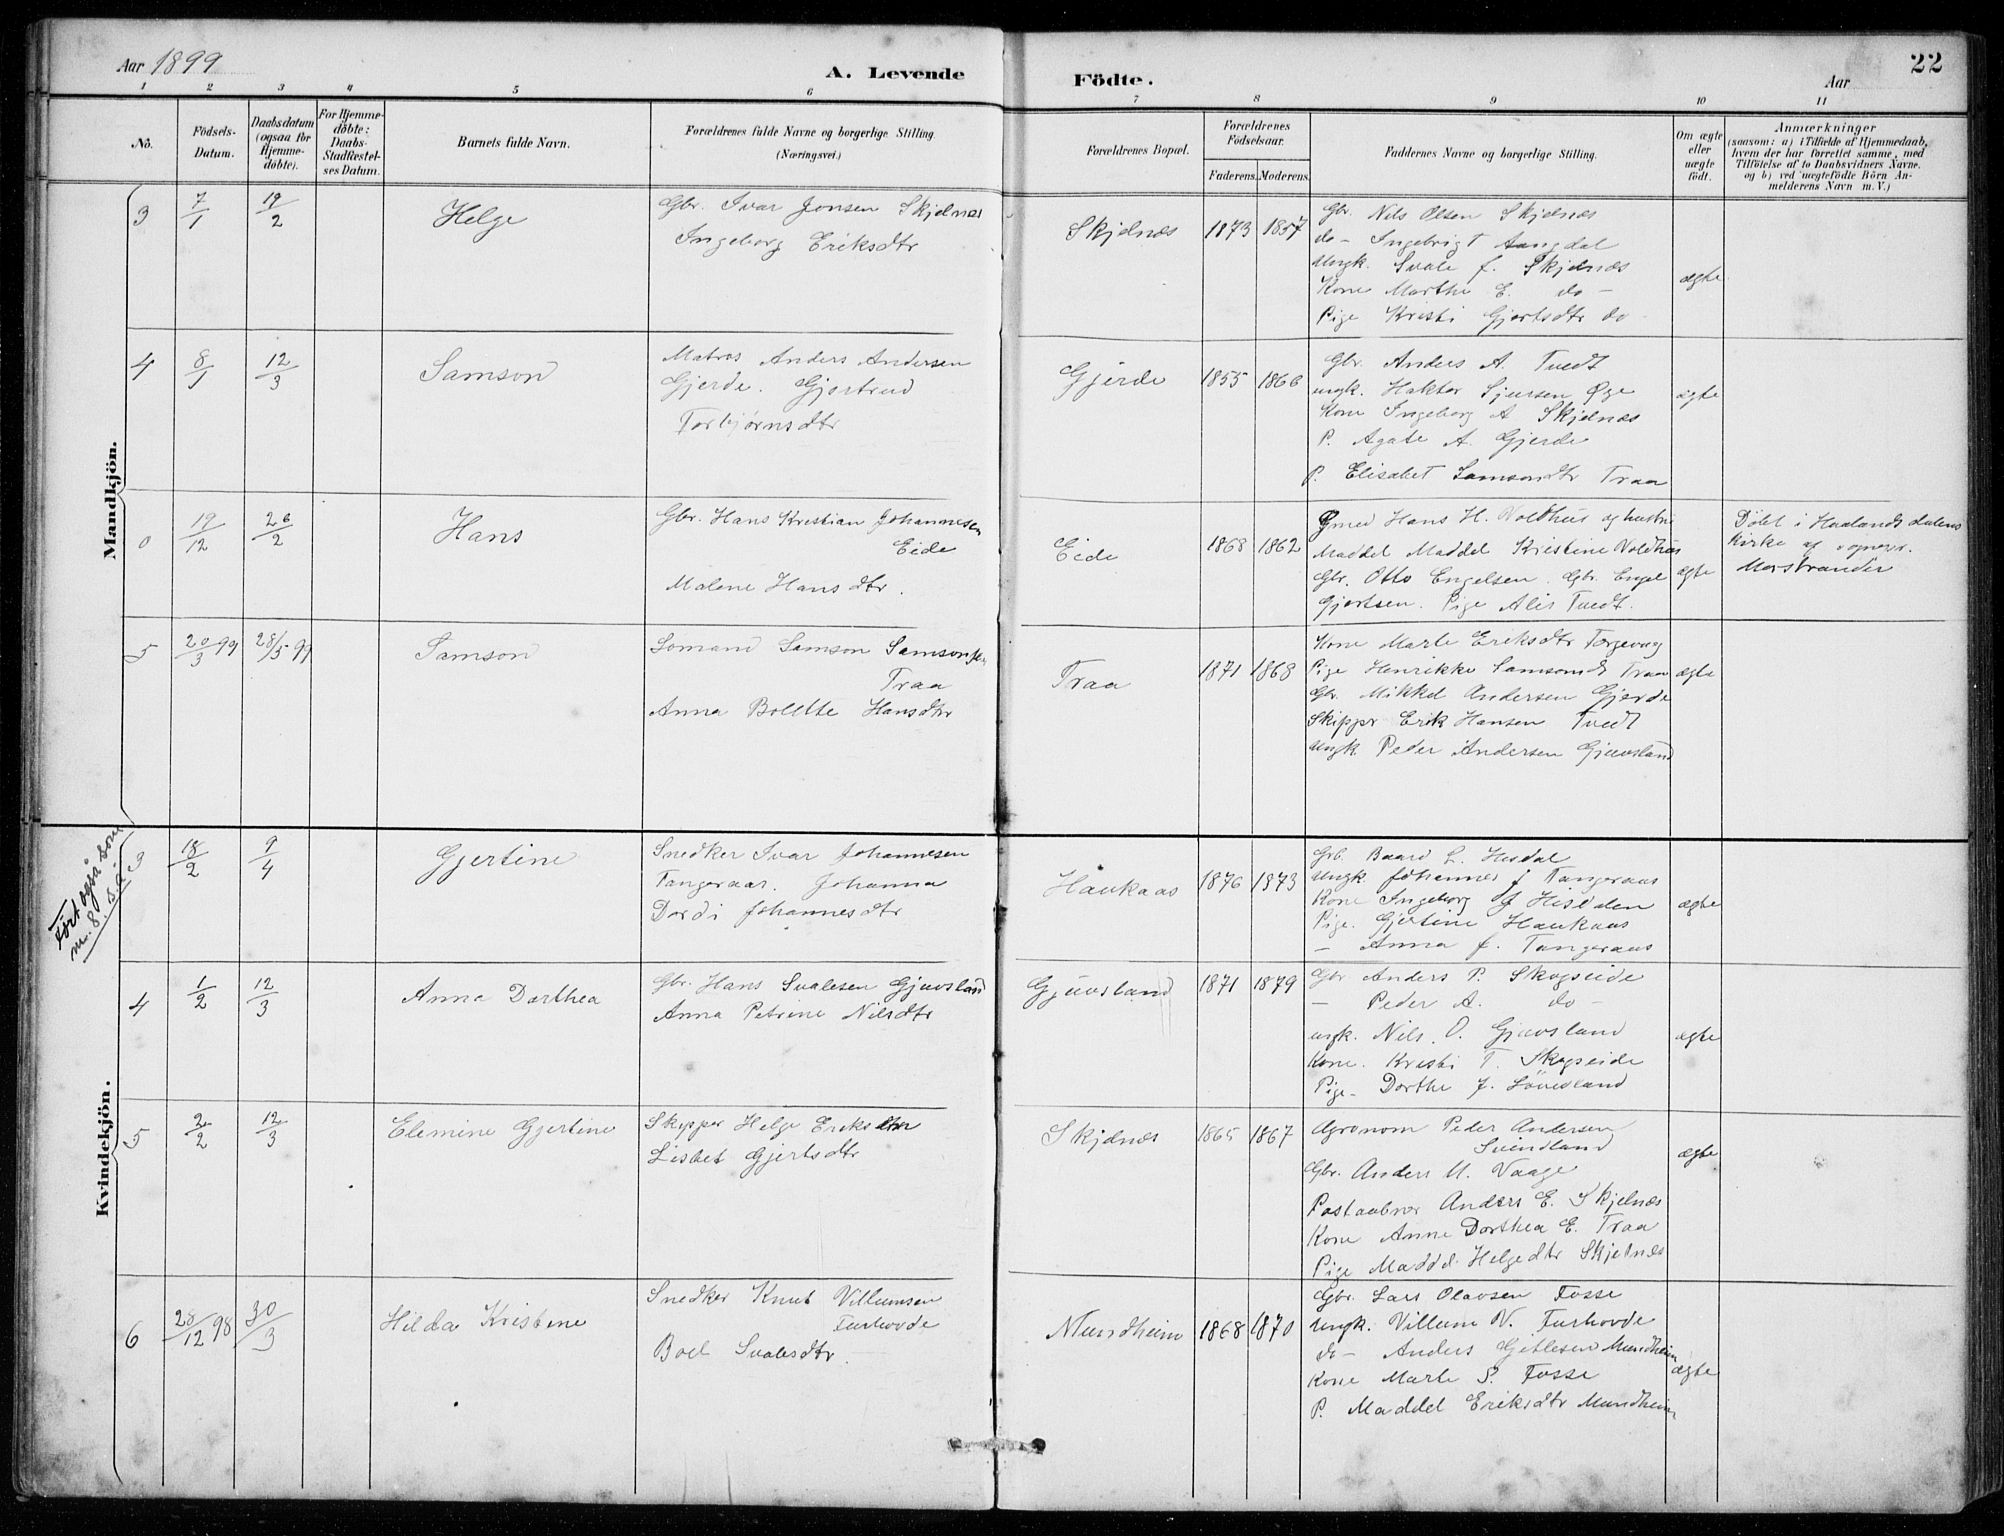 Aar 1899
A. Levende
Födte.
Aar
22
1 2 3 4 5 6 7 8 9 10 11
No.
Födsels-
Datum.
Daabsdatum
(ogsaa for
Hjemme-
döbte).
For Hjemme-
döbte:
Daabs-
Stadfæstel-
ses Datum.
Barnets fulde Navn.
Forældrenes fulde Navne og borgerlige Stilling.
(Næringsvei.)
Forældrenes Bopæl.
Forældrenes
Födselsaar.
Faderens. Moderens.
Faddernes Navne og borgerlige Stilling.
Om ægte
eller
uægte
födt.
Anmærkninger
(saasom: a) i Tilfælde af Hjemmedaab,
hvem der har forrettet samme, med
Tilföielse af to Daabsvidners Navne.
og b) ved uægtefödte Börn An-
melderens Navn m. V.)
Mandkjön.
3 7/1 19/2 Helge
Gbr. Ivar Jonsen Skjelnæs
Ingeborg Eriksdtr
Skjelnæs 1873 1857
Gbr. Nils Olsen Skjelnæs
do - Ingebrigt Aangdal
Ungk. Svale J. Skjelnæs
Kone Marthe E. do -
Pige Kristi Gjertsdtr do
ægte
4 8/1 12/3 Samson
Matros Anders Andersen
Gjerde. Gjertrud
Torbjørnsdtr
Gjerde 1855 1866
Gbr. Anders A. Tvedt
ungk. Haktor Sjursen Øye
Kone Ingeborg A Skjelnæs
P. Agate A. Gjerde
P. Elisabet Samsondtr Traa
ægte
0 19/12 26/2 Hans
Gbr. Hans Kristian Johannesen
Eide
Malene Hansdtr.
Eide 1868 1862
Hans H. Voldhus og hustru
Maddel Maddel Kristine Voldhus
Gbr. Otto Engelsen. Gbr. Engel
Gjertsen. Pige Alis Tvedt.
ægte
Døbt i Haalandsdalens
Kirke af sognepr.
Morstrander
5 20/3 99 28/5 99 Samson
Sømand Samson Samsonsen
Traa
Anna Bolette Hansdtr
Traa 1871 1868
Kone Marte Eriksdtr Tørgevag
Pige Henrikke Samsonsd. Traa
Gbr. Mikkel Andersen Gjerde
Skippr Erik Hansen Tvedt
Ungk Peder Andersen Gjuvsland
ægte
Kvindekjön.
Ført også som
m. 8. s.d.
3 18/2 9/4 Gjertine
Snedker Ivar Johannesen
Tangeraas. Johanna
Dordi Johannesdtr
Haukaas 1876 1873
Grb. Baard L. Hisdal
Ungk. Johannes J Tangeraas
Kone Ingeborg J Hisdalen
Pige. Gjertine Haukaas
- Anna J. Tangeraas
ægte
4 1/2 12/3 Anna Dorthea
Gbr. Hans Svalesen Gjuvsland
Anna Petrine Nilsdtr
Gjuvsland 1871 1879
Gbr Anders P. Skogseide
- Peder A. do -
ungk. Nils. O. Gjuvsland
Kone. Kristi T. Skogseide
Pige- Dorthe J. Lönesland
ægte
5 2/2 12/3 Elemine Gjertine
Skipper Helge Eriksen
Lisbet Gjertsdtr
Skjelnæs 1865 1867
Agronom Peder Andersen
Svindland
Gbr. Anders M. Vaage
Postaabner Anders E. Skjelnæs
Kone Anne Dorthea E. Traa
Pige Maddel Helgedtr Skjelnæs
ægte
6 28/12 98 30/3 Hilda Kristine
Snedker Knut Villumsen
Furhovde
Boel Svalesdtr.
Mundheim 1868 1870
Gbr. Lars Olavsen Fosse
Ungk. Villum V. Furhovde
do - Anders Gitlesen Mundheim
Kone Marte P. Fosse
P. Maddel Eriksdtr Mundheim
ægte